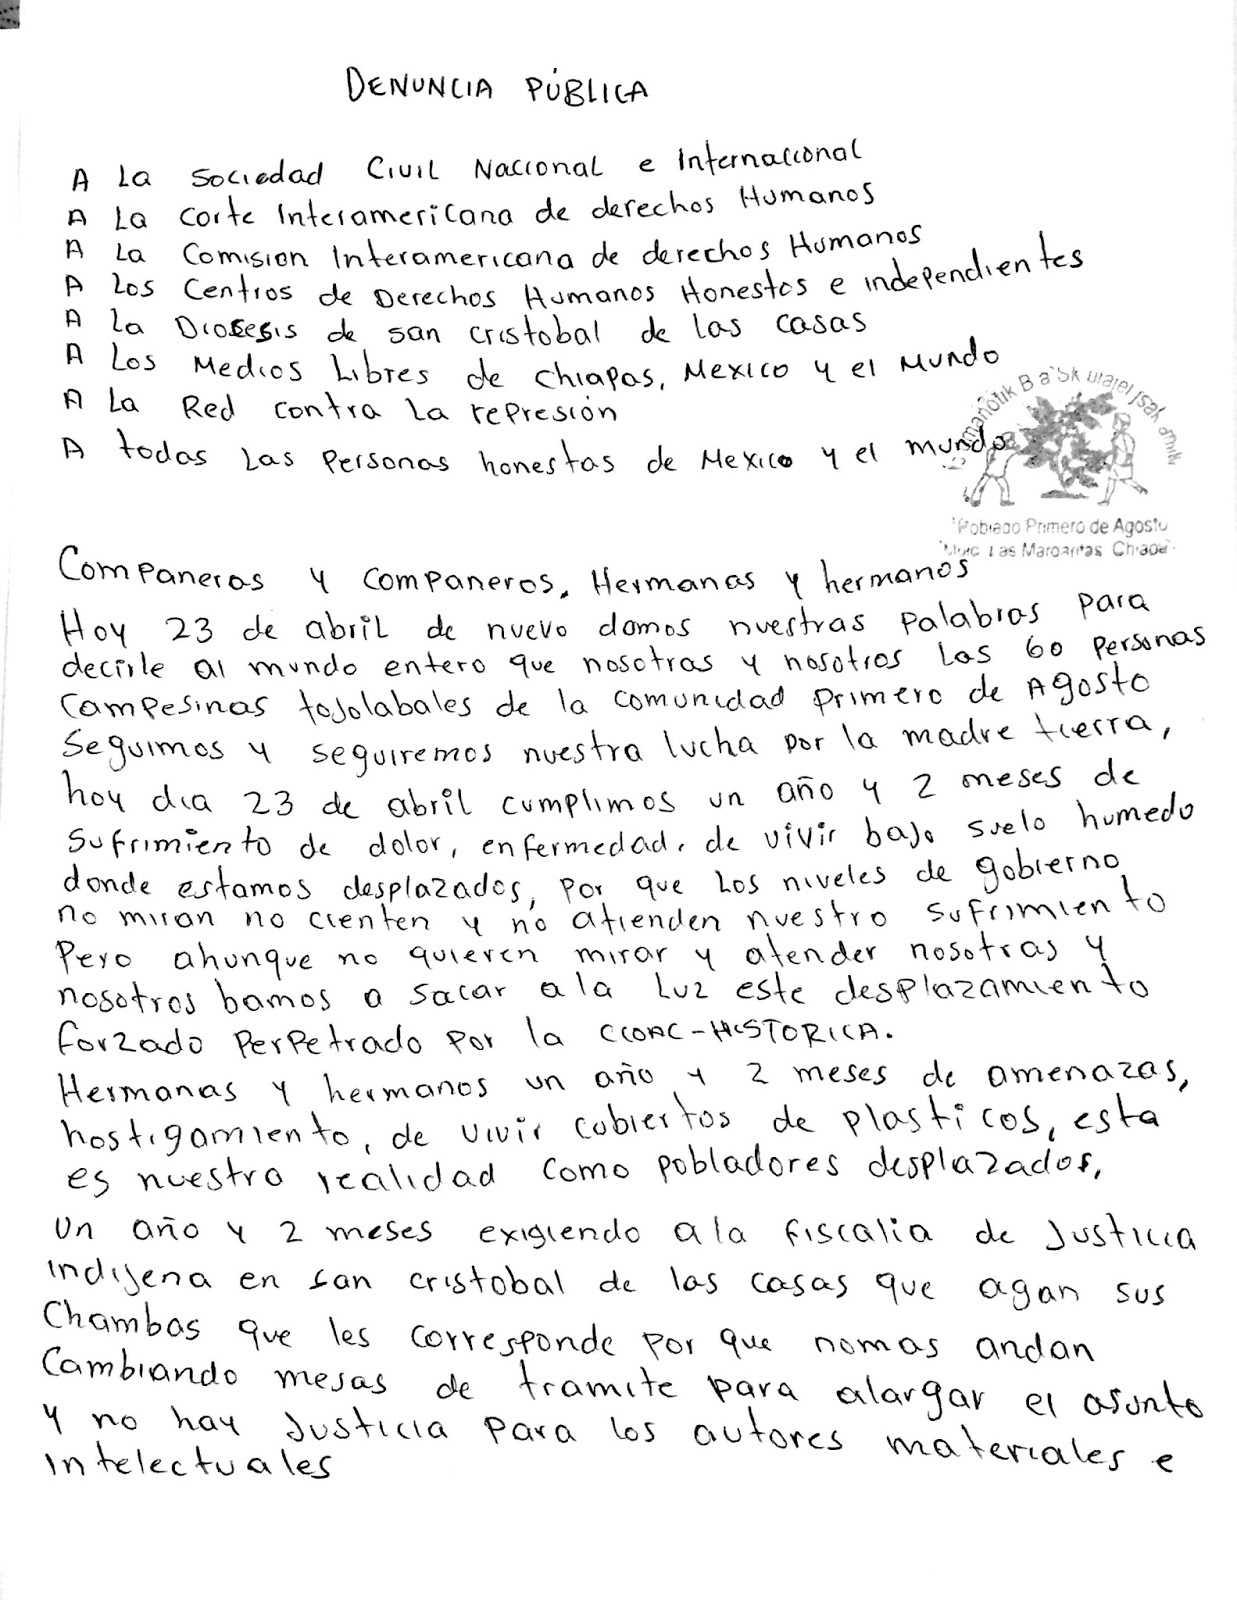 DENUNCIA PÚBLICA
A La Sociedad Civil Nacional e Internacional
A La Corte Interamericana de derechos Humanos
A La Comision Interamericana de derechos Humanos
A Los Centros de Derechos Humanos Honestos e independientes
A La Diocesis de san cristobal de las casas
A Los Medios Libres de Chiapas, Mexico y el Mundo
A La Red contra la represión
A todas Las Personas honestas de Mexico y el mundo
Poblado Primero de Agosto
Las Margaritas Chiapas
Companeras y companeros, Hermanas y hermanos
Hoy 23 de abril de nuevo damos nuestras palabras para
decirle al mundo entero que nosotras y nosotros las 60 personas
campesinas tojolabales de la comunidad primero de Agosto
Seguimos y seguiremos nuestra lucha por la madre tierra,
hoy dia 23 de abril cumplimos un año y 2 meses de
Sufrimiento de dolor, enfermedad, de vivir bajo suelo humedo
donde estamos desplazados, por que los niveles de gobierno
no miran no cienten y no atienden nuestro sufrimiento
Pero ahunque no quieren mirar y atender nosotras y
nosotros bamos a sacar a la luz este desplazamiento
forzado perpetrado por la CIOAC-HISTORICA.
Hermanas y hermanos un año y 2 meses de amenazas,
hostigamiento, de vivir cobiertos de plasticos, esta
es nuestra realidad como pobladores desplazados,
Un año y 2 meses exigiendo a la fiscalia de Justicia
Indijena en san cristobal de las casas que agan sus
Chambas que les corresponde por que nomas andan
Cambiando mesas de tramite para alargar el asunto
y no hay Justicia para los autores materiales e
Intelectuales